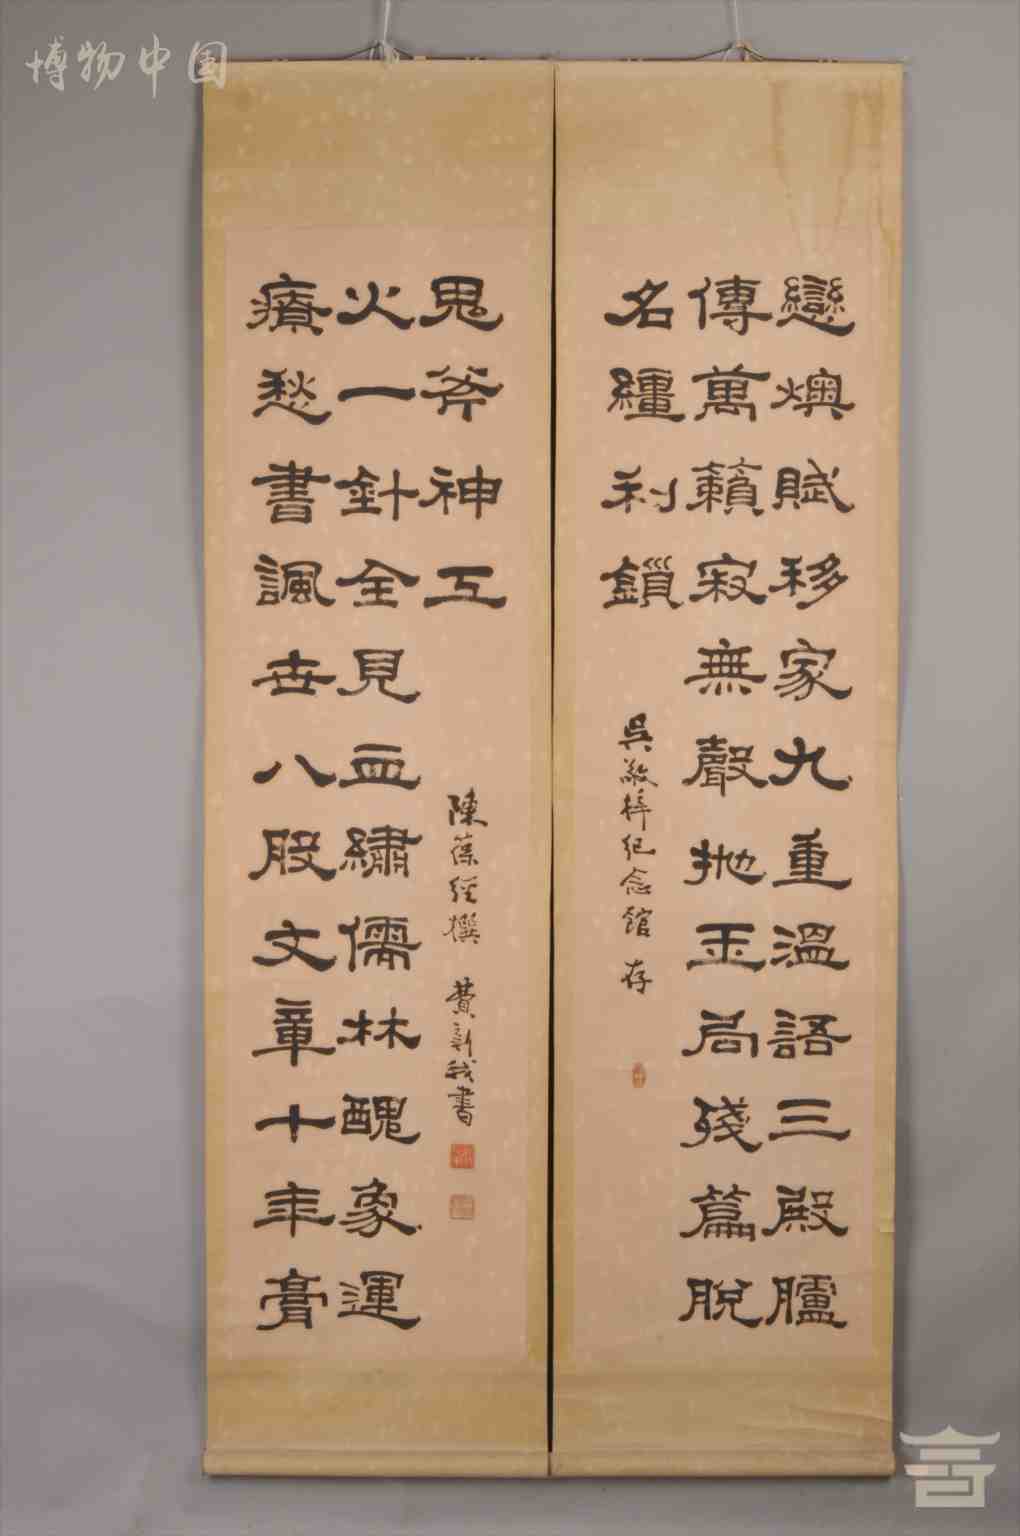 博物中国
戀燠賦移家九重溫語三殿臚
傳萬籟寂無聲拋玉局殘篇脫
名繮利鎖
吳敬梓紀念館存
療愁書諷世八股文章十年膏
火一針全見血繡儒林醜象運
鬼斧神工
陳葆經撰 費新我書